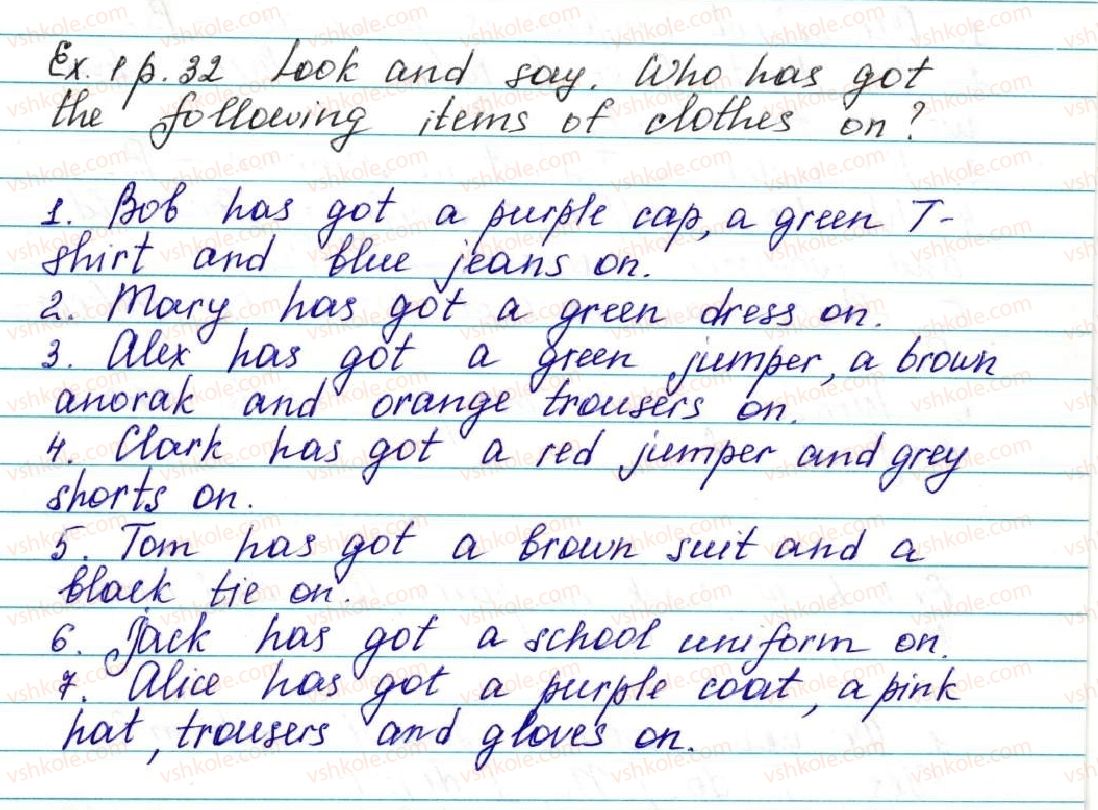 Ex. 1 p. 32 Look and say. Who has got
the following items of clothes on?
1. Bob has got a purple cap, a green T-
shirt and blue jeans on.
2. Mary has got a green dress on.
3. Alex has got a green jumper, a brown
anorak and orange trousers on.
4. Clark has got a red jumper and grey
shorts on.
5. Tom has got a brown suit and a
black tie on.
6. Jack has got a school uniform on.
7. Alice has got a purple coat, a pink
hat, trousers and gloves on.
vshkole.com